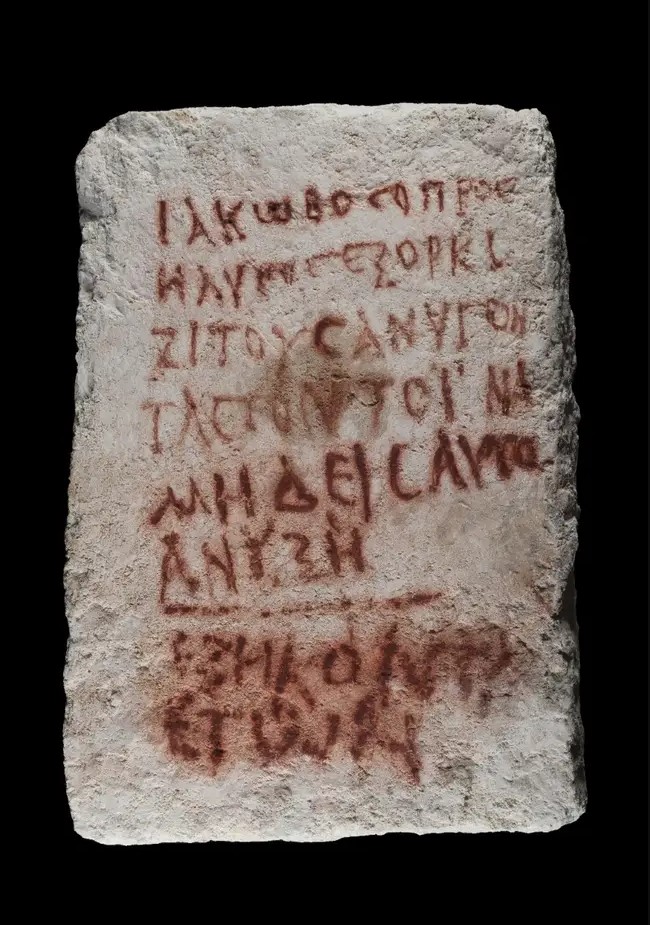 ΙΑΚΩΒΟϹΟΠΡΟϹ
ΗΛΥΤΟϹΕΞΟΡΚΙ
ΖΙΤΟΥϹΑΝΥΓΟΝ
ΤΑϹ
ΜΗΔΕΙϹΑΥΤΟ
ΑΝΥΞΗ
ΕΞΗΚΟΝΤΑ
ΕΤΩΝ